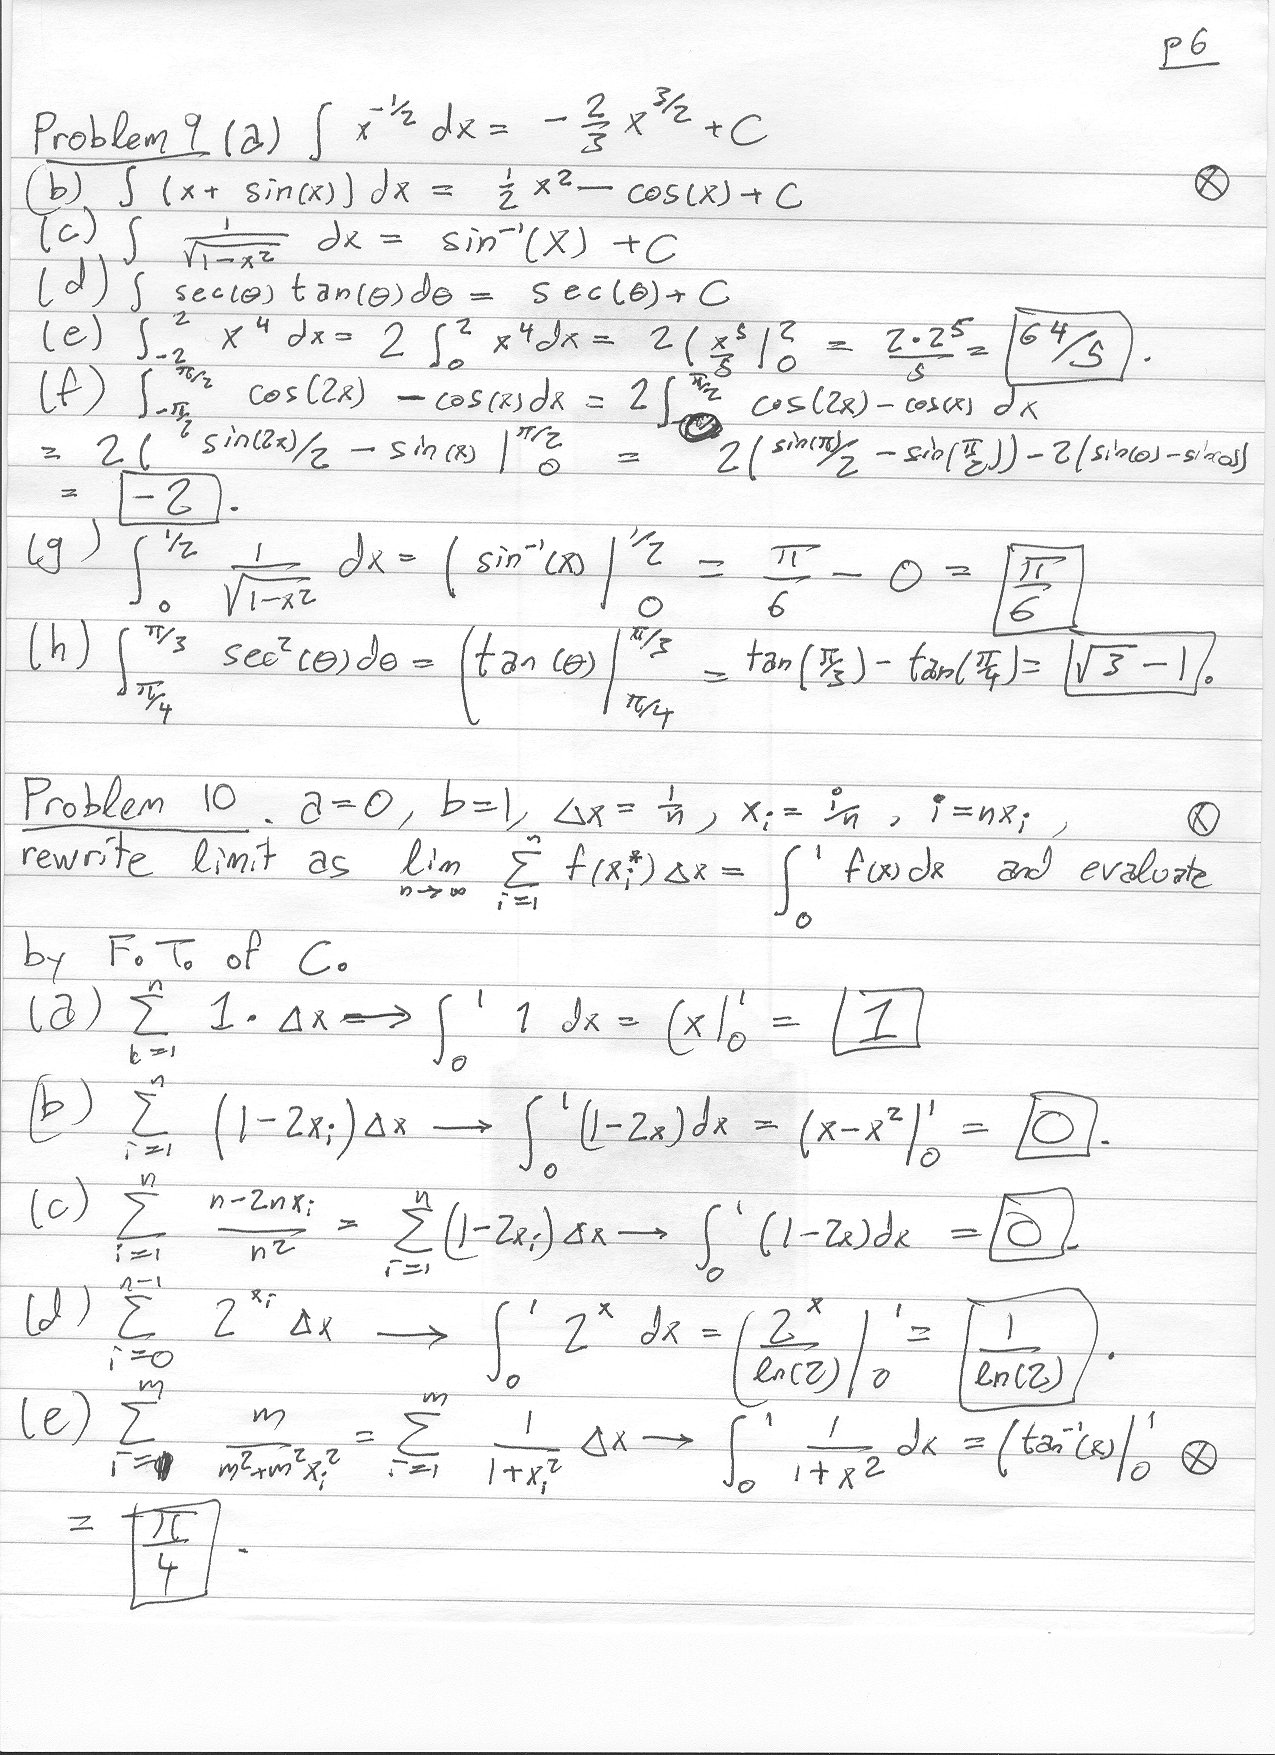 p 6
Problem 9 (a) ∫ x^{-1/2} dx = -2/3 x^{3/2} + C
(b) ∫ (x + sin(x)) dx = 1/2 x² - cos(x) + C
(c) ∫ 1/√(1-x²) dx = sin⁻¹(x) + C
(d) ∫ sec(θ) tan(θ) dθ = sec(θ) + C
(e) ∫_{-2}^{2} x⁴ dx = 2 ∫_0^2 x⁴ dx = 2 ( x⁵/5 |_0^2 = 2·2⁵/5 = 64/5 .
(f) ∫_{-π/2}^{π/2} cos(2x) - cos(x) dx = 2 ∫^{π/2} cos(2x) - cos(x) dx
= 2 ( sin(2x)/2 - sin(x) |_0^{π/2} = 2 ( sin(π)/2 - sin(π/2)) - 2 ( sin(0) - sin(0))
= -2 .
(g) ∫_0^{1/2} 1/√(1-x²) dx = ( sin⁻¹(x) |_0^{1/2} = π/6 - 0 = π/6
(h) ∫_{π/4}^{π/3} sec²(θ) dθ = ( tan(θ) |_{π/4}^{π/3} = tan(π/3) - tan(π/4) = √3 - 1 .
Problem 10 . a=0, b=1, Δx = 1/n, x_i = i/n, i = nx_i ,
rewrite limit as lim_{n→∞} Σ_{i=1}^{n} f(x_i*) Δx = ∫_0^1 f(x) dx and evaluate
by F.T. of C.
(a) Σ_{k=1}^{n} 1 · Δx → ∫_0^1 1 dx = ( x |_0^1 = 1
(b) Σ_{i=1}^{n} (1-2x_i) Δx → ∫_0^1 (1-2x) dx = ( x-x² |_0^1 = 0 .
(c) Σ_{i=1}^{n} (n-2nx_i)/n² = Σ_{i=1}^{n} (1-2x_i) Δx → ∫_0^1 (1-2x) dx = 0 .
(d) Σ_{i=0}^{n-1} 2^{x_i} Δx → ∫_0^1 2^x dx = ( 2^x/ln(2) |_0^1 = 1/ln(2) .
(e) Σ_{i=}^{m} m/(m²+m²x_i²) = Σ_{i=1}^{m} 1/(1+x_i²) Δx → ∫_0^1 1/(1+x²) dx = ( tan⁻¹(x) |_0^1
= π/4 .